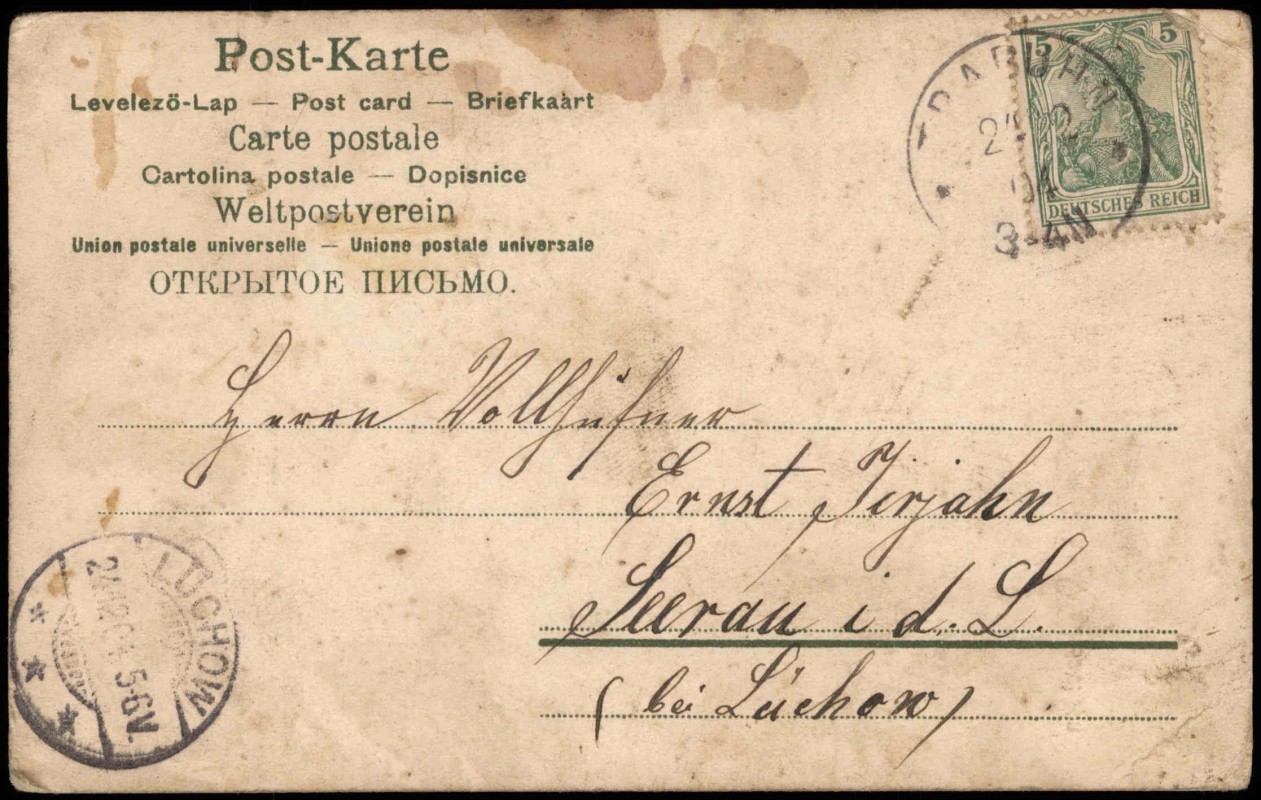 Post-Karte
Levelezö-Lap — Post card — Briefkaart
Carte postale
Cartolina postale — Dopisnice
Weltpostverein
Union postale universelle — Unione postale universale
ОТКРЫТОЕ ПИСЬМО.
5 5
DEUTSCHES REICH
TRABUHN
04
3-4N
Herrn Vollhüfner
Ernst Jirjahn
Seerau i. d. L.
(bei Lüchow)
LÜCHOW
24.12.04. 5-6V.